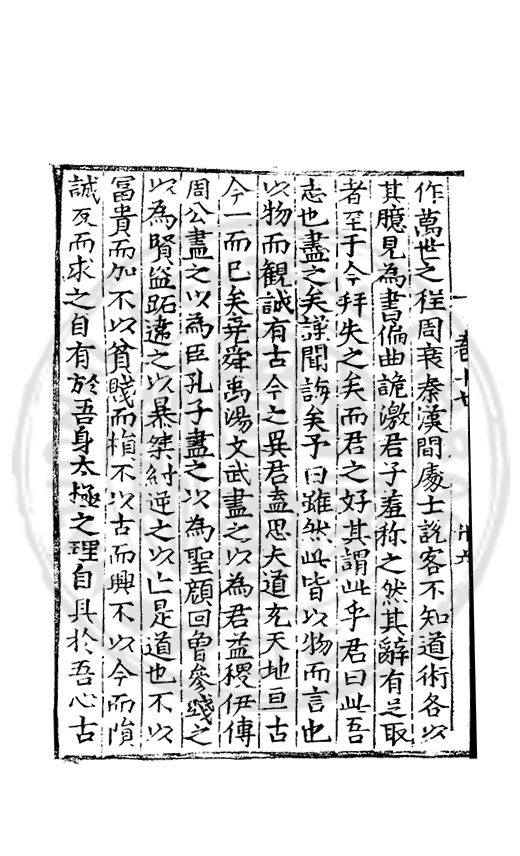 作萬世之程周衰秦漢間處士說客不知道術各以
其臆見為書偏曲詭激君子羞称之然其辭有足取
者至于今幷失之矣而君之好其謂此乎君曰此吾
志也盡之矣謹聞誨矣予曰雖然此皆以物而言也
以物而觀誠有古今之異君盍思夫道充天地亘古
今一而已矣堯舜禹湯文武盡之以為君益稷伊傅
周公盡之以為臣孔子盡之以為聖顔回曾參踐之
以為賢盜跖違之以暴桀紂逆之以亡是道也不以
冨貴而加不以貧賤而損不以古而興不以今而隕
誠反而求之自有於吾身太極之理自具於吾心古
卷十七